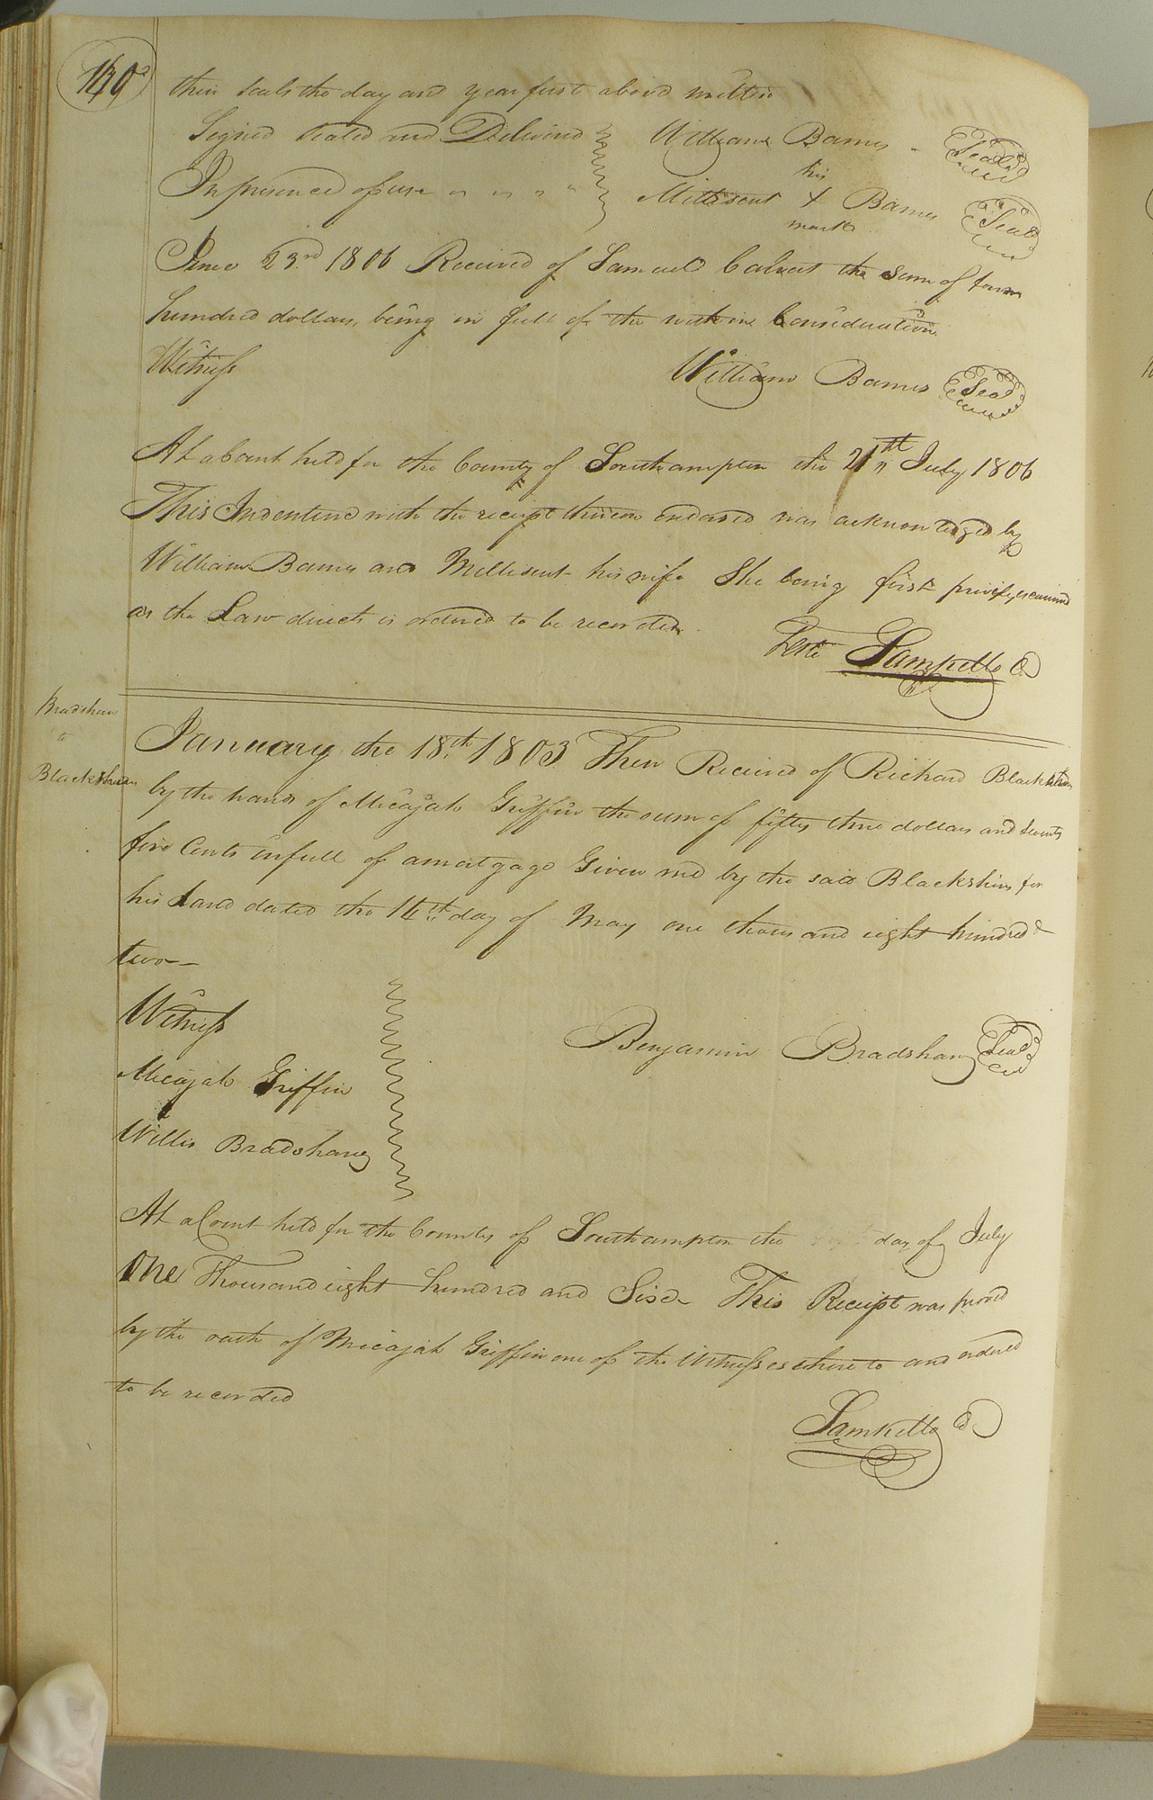 140
their seals the day and year first above written
Signed Sealed and Delivered William Barnes Seal
In presence of us his
Millisent X Barnes Seal
mark
June 23rd 1806 Received of Samuel Calvert the sum of four
hundred dollars, being in full of the within Consideration
Witness William Barnes Seal
At a Court held for the County of Southampton the 21st July 1806
This Indenture with the receipt thereon endorsed was acknowledged by
William Barnes and Millisent his wife She being first privily examined
as the Law directs is ordered to be recorded.
Teste Saml Kello C
Bradshaw
to
Blackshins
January the 18th 1803 Then Received of Richard Blackshins
by the hands of Micajah Griffin the sum of fifty three dollars and seventy
five Cents in full of a mortgage Given me by the said Blackshins for
his Land dated the 14th day of May one thousand eight hundred &
two
Witness
Benjamin Bradshaw Seal
Micajah Griffin
Willis Bradshaw
At a Court held for the County of Southampton the day of July
One Thousand eight hundred and Six This Receipt was proved
by the oath of Micajah Griffin one of the Witnesses thereto and ordered
to be recorded
Saml Kello C